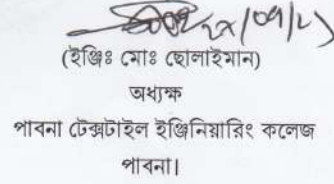 (ইঞ্জিঃ মোঃ ছোলাইমান)
অধ্যক্ষ
পাবনা টেক্সটাইল ইঞ্জিনিয়ারিং কলেজ
পাবনা।